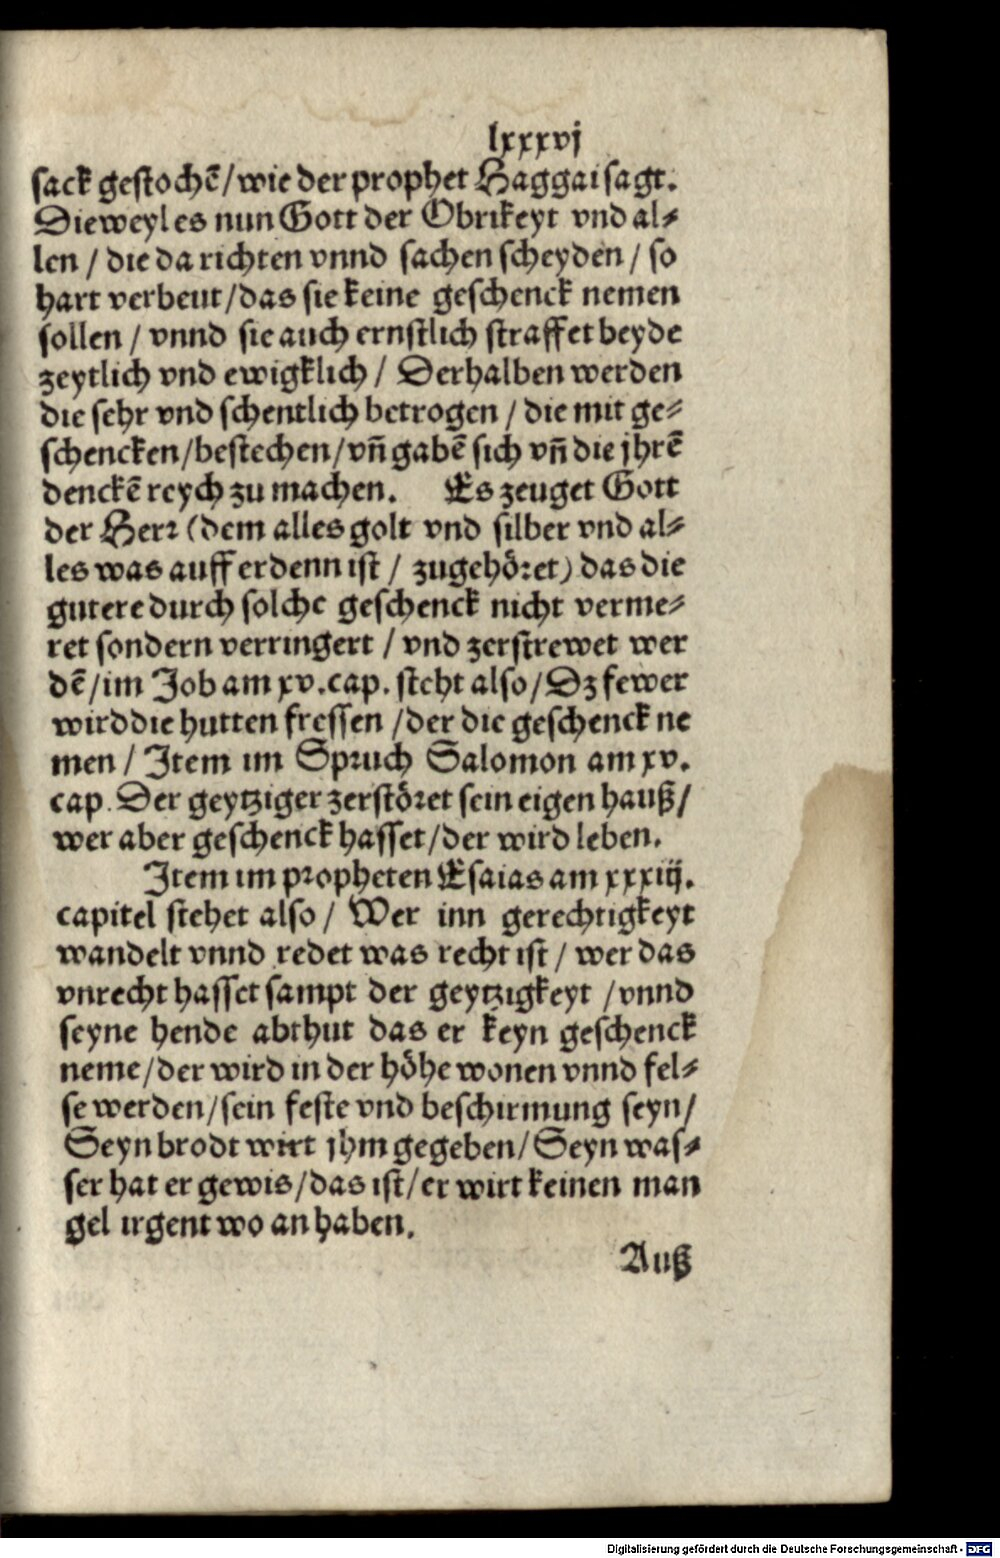 lxxxvj
sack gestochē/wie der prophet Haggai sagt.
Dieweyl es nun Gott der Obrikeyt vnd al⸗
len / die da richten vnnd sachen scheyden / so
hart verbeut/das sie keine geschenck nemen
sollen / vnnd sie auch ernstlich straffet beyde
zeytlich vnd ewigklich / Derhalben werden
die sehr vnd schentlich betrogen / die mit ge⸗
schencken/bestechen/vñ gabē sich vñ die jhrē
denckē reych zu machen. Es zeuget Gott
der Herr (dem alles golt vnd silber vnd al⸗
les was auff erdenn ist / zugehöret) das die
gutere durch solche geschenck nicht verme⸗
ret sondern verringert / vnd zerstrewet wer
dē/im Job am xv.cap. steht also/Dz fewer
wird die hutten fressen /der die geschenck ne
men / Item im Spruch Salomon am xv.
cap. Der geytziger zerstöret sein eigen hauß/
wer aber geschenck hasset/der wird leben.
Item im propheten Esaias am xxxiij.
capitel stehet also / Wer inn gerechtigkeyt
wandelt vnnd redet was recht ist / wer das
vnrecht hasset sampt der geytzigkeyt /vnnd
seyne hende abthut das er keyn geschenck
neme/der wird in der höhe wonen vnnd fel⸗
se werden/sein feste vnd beschirmung seyn/
Seyn brodt wirt jhm gegeben/Seyn was⸗
ser hat er gewis/das ist/er wirt keinen man
gel irgent wo an haben.
Auß
Digitalisierung gefördert durch die Deutsche Forschungsgemeinschaft - DFG